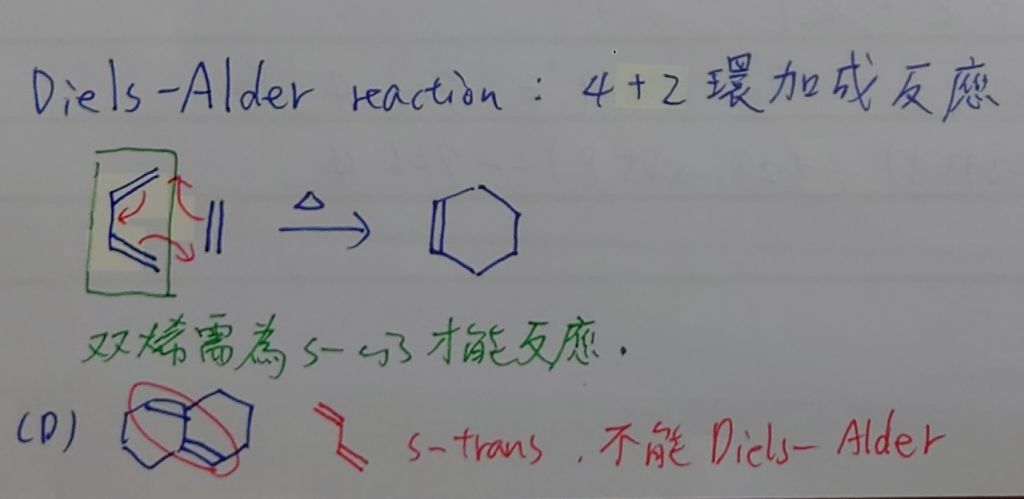 Diels-Alder reaction : 4+2 環加成反應
△
双烯需為 s-cis 才能反應.
(D) s-trans . 不能 Diels-Alder